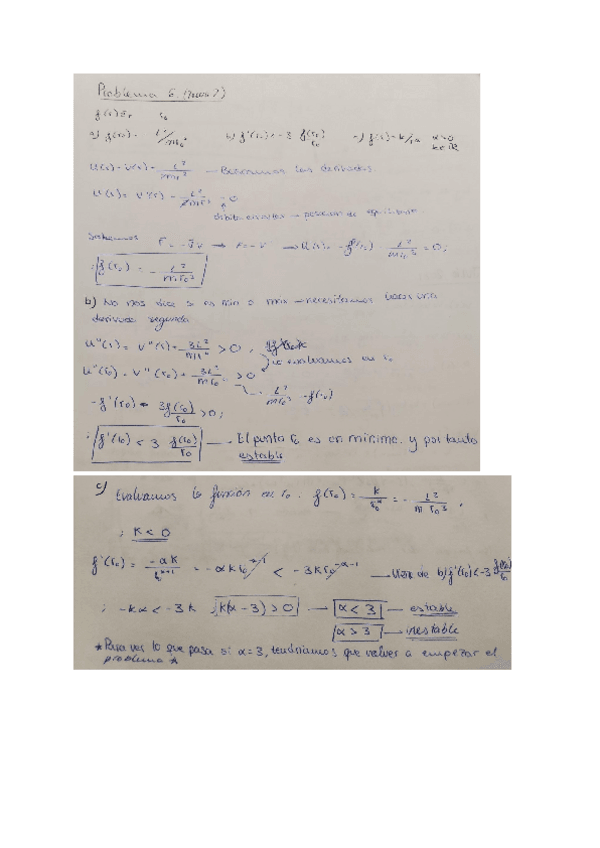 Problema 6. (
f(r) r0
a) f(r0) = - L²/mr0³ b) f'(r0) < -3 f(r0)/r0 c) f(r) = k/rα α>0
U(r) = V(r) + L²/mr² - Buscamos las derivadas
U'(r) = V'(r) - L²/mr³ = 0
→ posición de equilibrio
Sabemos F = -∇V → F = -V' → U'(r) = -f(r) - L²/mr³ = 0;
; f(r0) = - L²/mr0³
b) No nos dice si es min o max → necesitamos hacer una
derivada segunda
U''(r) = V''(r) + 3L²/mr⁴ > 0,
U''(r0) = V''(r0) + 3L²/mr0⁴ > 0 lo evaluamos en r0
- L²/mr0³ = f(r0)
-f'(r0) - 3f(r0)/r0 > 0;
; f'(r0) < 3 f(r0)/r0 — El punto r0 es un mínimo y por tanto
estable
c) Evaluamos la función en r0. f(r0) = k/r0^α = - L²/mr0³,
; K < 0
f'(r0) = -αk/r0^α+1 = -αk r0^-α-1 < -3k r0^-α-1 — Viene de b) f'(r0) < -3 f(r0)/r0
; -kα < -3k ; k(α-3) > 0 — α < 3 — estable
α > 3 — inestable
*Para ver lo que pasa si α=3, tendríamos que volver a empezar el
problema *